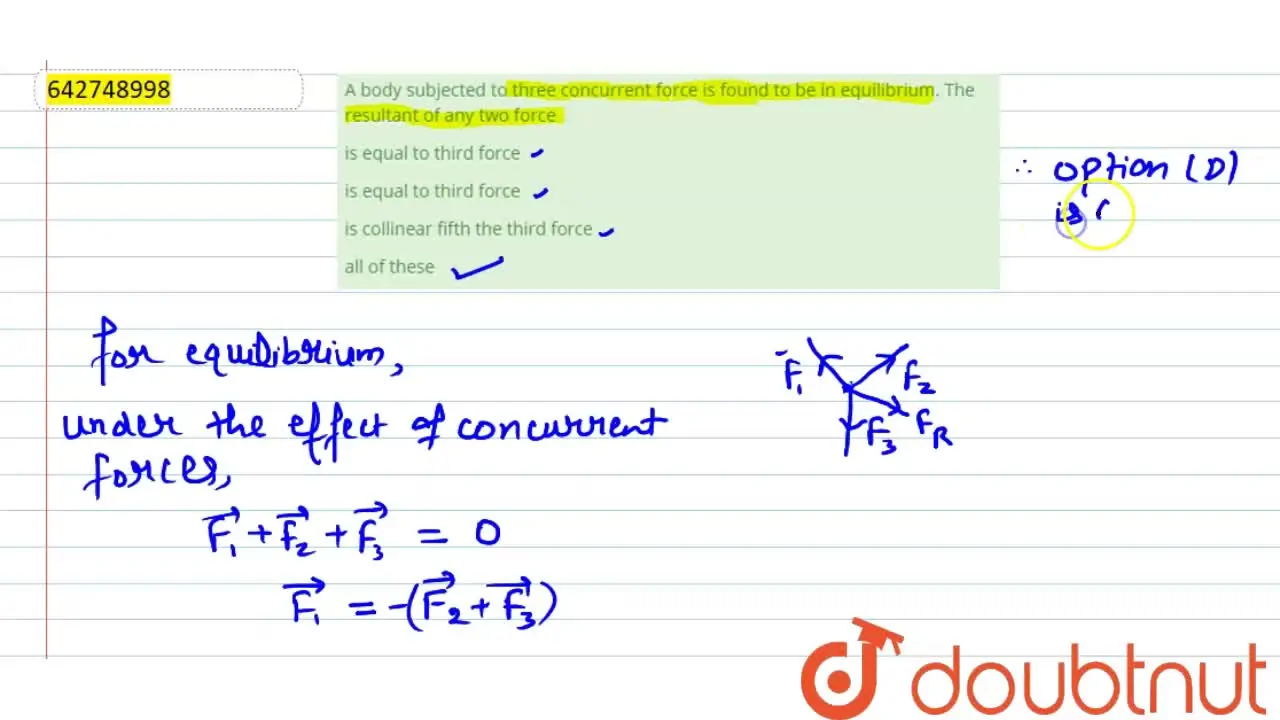 642748998
A body subjected to three concurrent force is found to be in equilibrium. The
resultant of any two force
is equal to third force
is equal to third force
is collinear fifth the third force
all of these
∴ option (D)
is (
for equilibrium,
under the effect of concurrent
forces,
F₁ + F₂ + F₃ = 0
F₁ = -(F₂ + F₃)
F₁
F₂
F₃
F_R
doubtnut